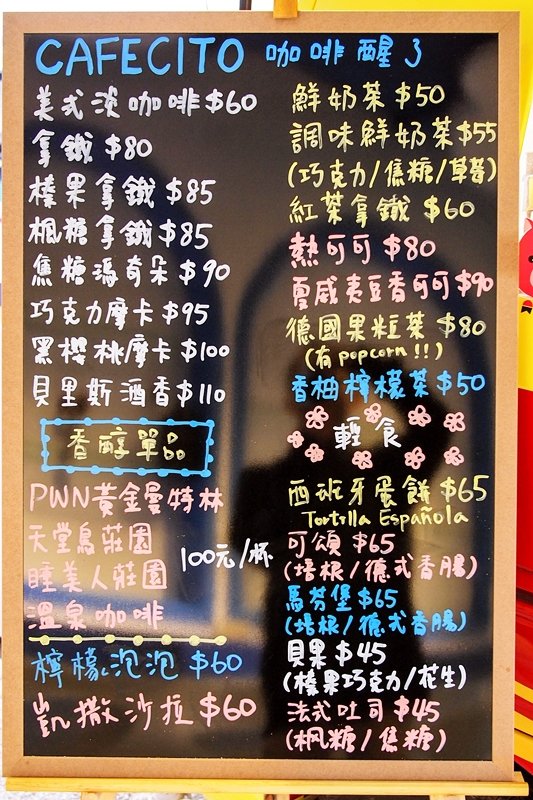 CAFECITO 咖啡醒了
美式淡咖啡 $60
拿鐵 $80
榛果拿鐵 $85
楓糖拿鐵 $85
焦糖瑪奇朵 $90
巧克力摩卡 $95
黑櫻桃摩卡 $100
貝里斯酒香 $110
香醇單品
PWN黃金曼特林
天堂鳥莊園
100元/杯
睡美人莊園
溫泉咖啡
檸檬泡泡 $60
凱撒沙拉 $60
鮮奶茶 $50
調味鮮奶茶 $55
(巧克力/焦糖/草莓)
紅茶拿鐵 $60
熱可可 $80
夏威夷豆香可可 $90
德國果粒茶 $80
(有 popcorn!!)
香柚檸檬茶 $50
輕食
西班牙蛋餅 $65
Tortilla Española
可頌 $65
(培根/德式香腸)
馬芬堡 $65
(培根/德式香腸)
貝果 $45
(榛果巧克力/花生)
法式吐司 $45
(楓糖/焦糖)